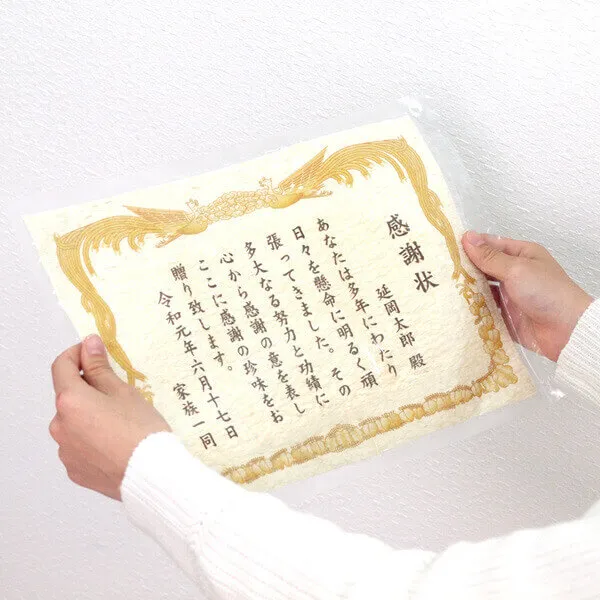 感謝状
延岡太郎 殿
あなたは多年にわたり
日々を懸命に明るく頑
張ってきました。その
多大なる努力と功績に
心から感謝の意を表し
ここに感謝の珍味をお
贈り致します。
令和元年六月十七日
家族一同